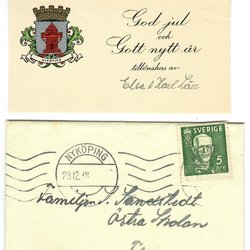 God jul
och
Gott nytt år
tillönskas av
Elsa o Karl
NYKÖPING
23.12
SVERIGE
5
ÖRE
Familjen S. Sandstedt
Östra Skolan